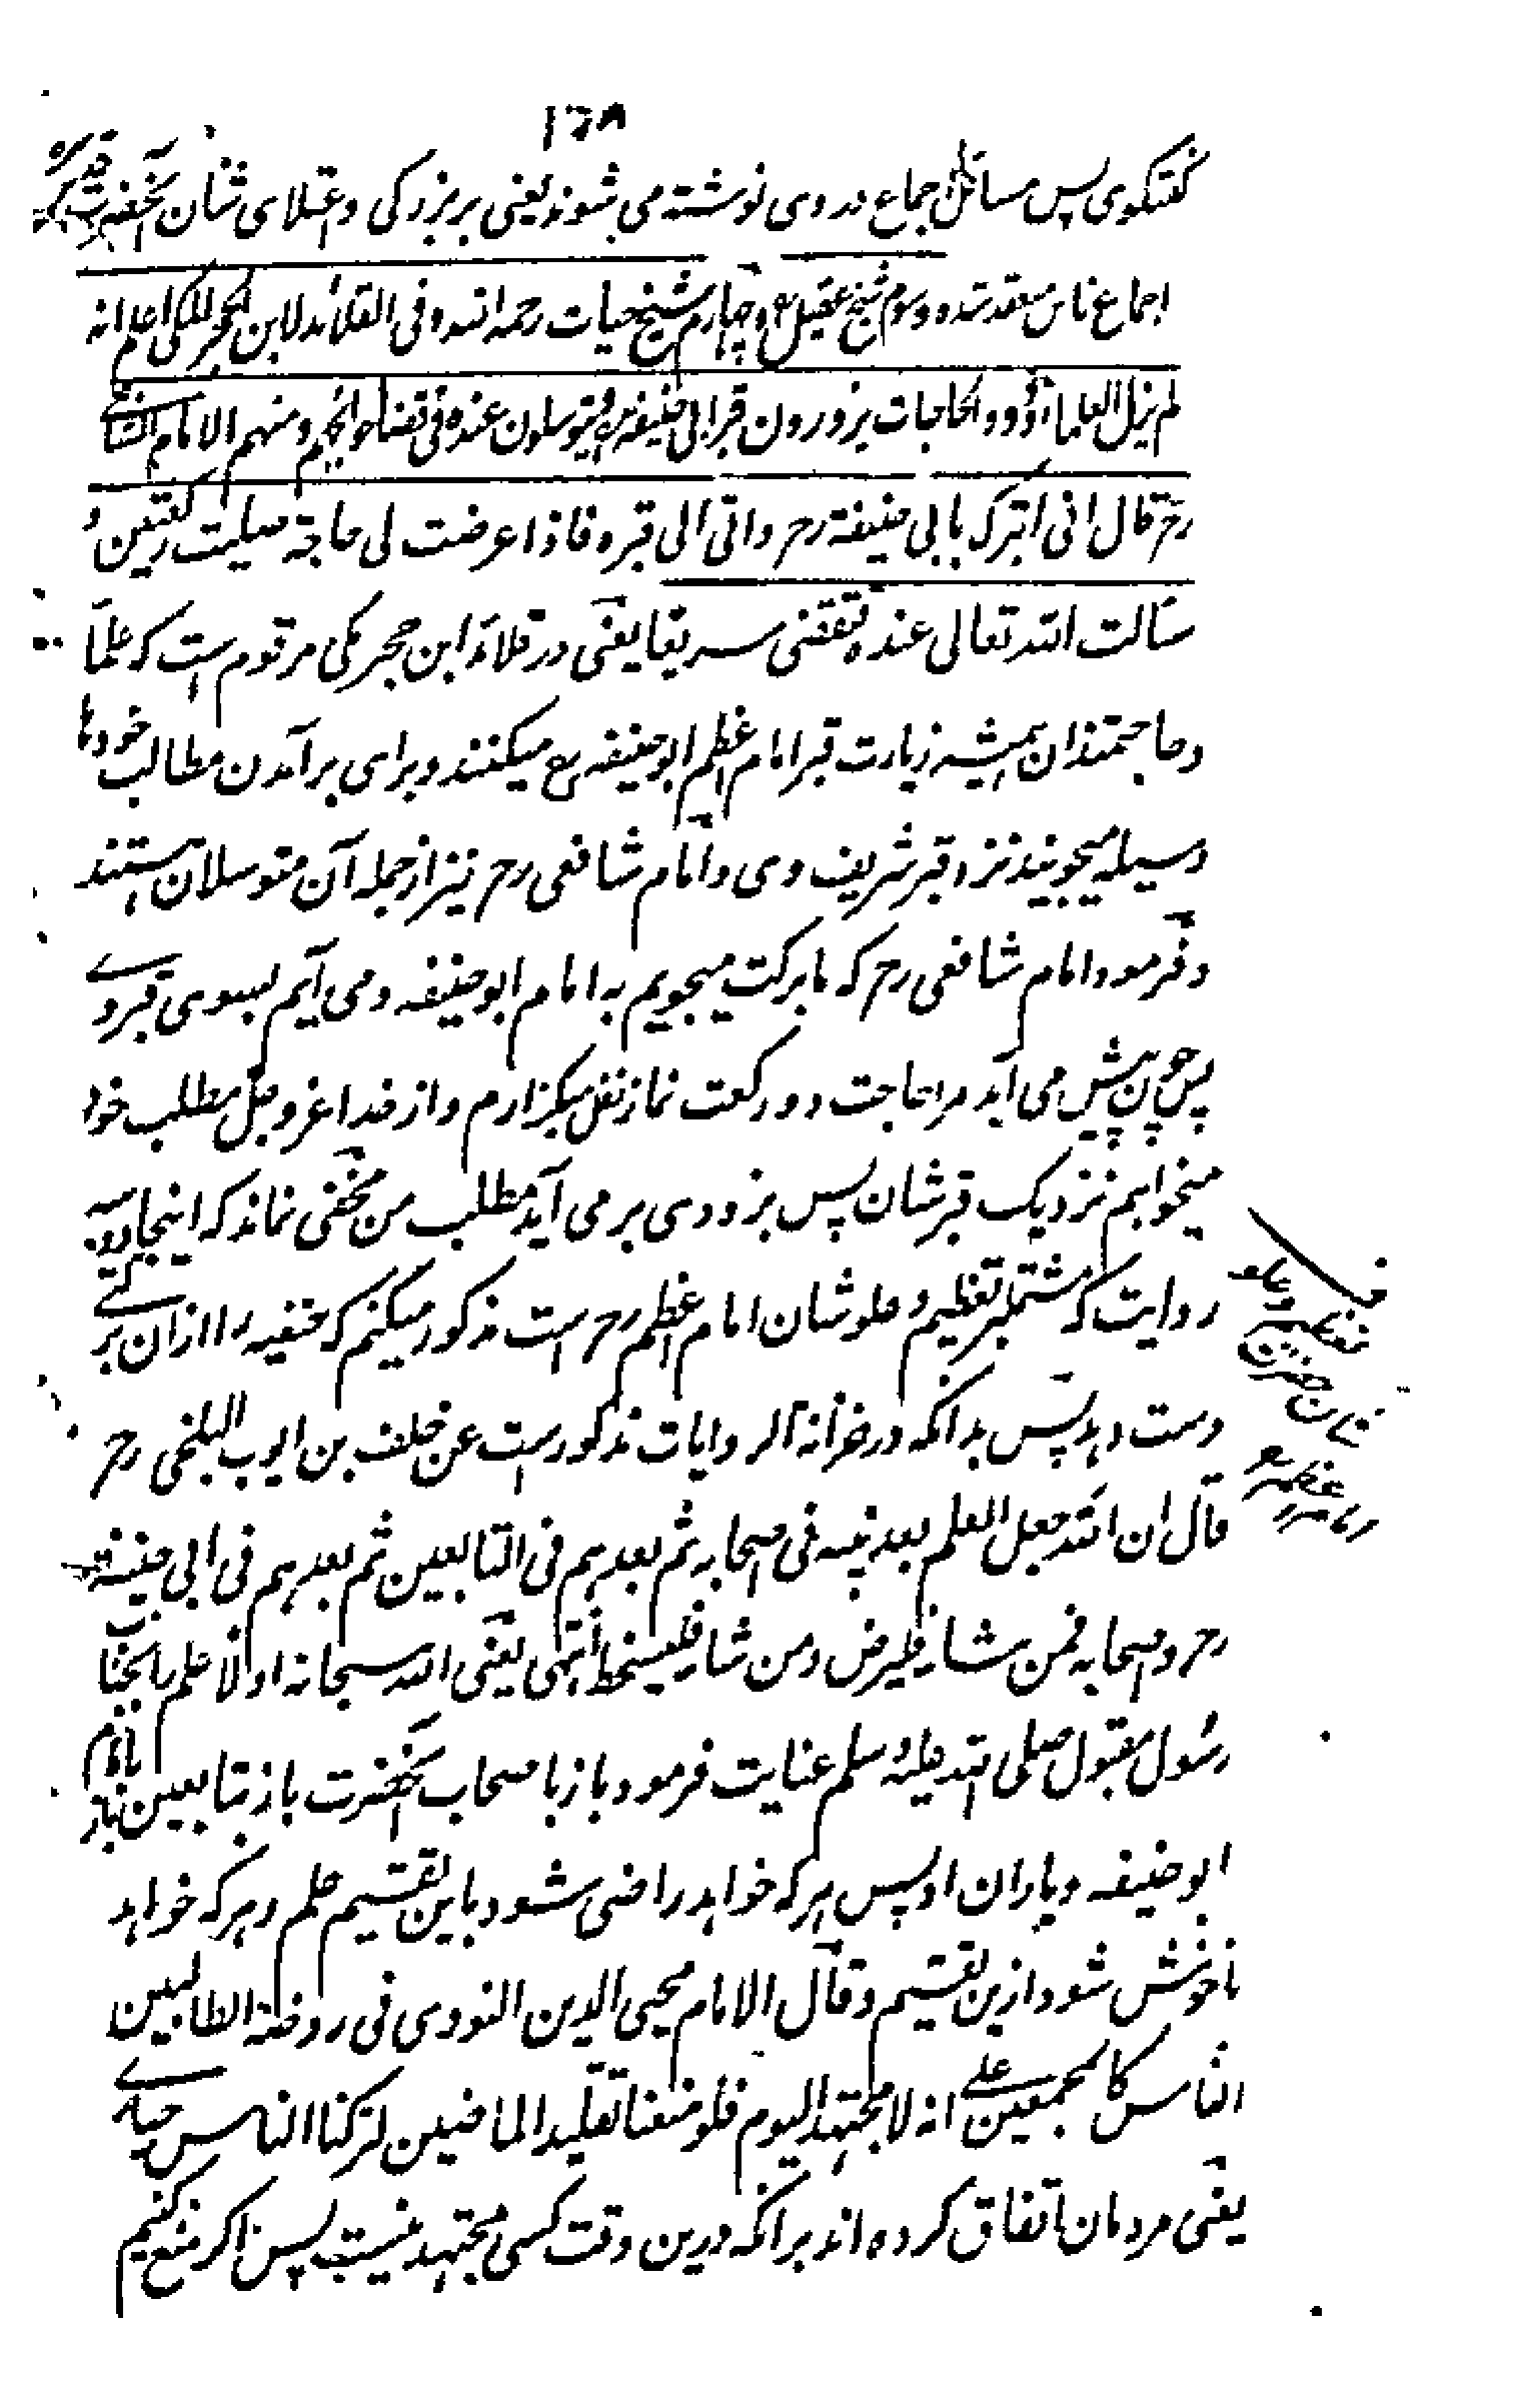 ۱۶۸
گفتگوی پس مسائل اجماع در وی نوشته می شوند یعنی بر بزرگی و اعتلای شان آنحضرت
اجماع ناس منعقد شده و سوم شیخ عقیل و چهارم شیخ حیات رحمه الله و فی القلائد لابن الحجر المکی اعلم انه
لم یزل العلماء و ذوو الحاجات یزورون قبر ابی حنیفه و یتوسلون عنده فی قضاء حوائجهم و منهم الامام الشافعی
رح قال انی اتبرک بابی حنیفة رح و اتی الی قبره فاذا عرضت لی حاجة صلیت رکعتین و
سألت الله تعالی عنده فتقضی سریعا یعنی در قلائد ابن حجر مکی مرقوم ست که علما
و حاجتمندان همیشه زیارت قبر امام اعظم ابو حنیفه رح میکنند و برای برآمدن مطالب خودها
وسیله میجویند نزد قبر شریف وی و امام شافعی رح نیز از جمله آن متوسلان هستند
و فرمود امام شافعی رح که ما برکت میجویم به امام ابو حنیفه و می آیم بسوی قبر وے
پس چون پیش می آید مرا حاجت دو رکعت نماز نفل میگزارم و از خدا عز و جل مطلب خود
میخواهم نزدیک قبر شان پس بزودی بر می آید مطلب من مخفی نماند که اینجا
روایت که مشتمل بر تعظیم و علو شان امام اعظم رح است مذکور میکنم که حنفیه را ازان برکتے
دست دهد پس بدانکه در خزانة الروایات مذکور ست عن خلف بن ایوب البلخی رح
قال ان الله جعل العلم بعد نبیه فی اصحابه ثم بعدهم فی التابعین ثم بعدهم فی ابی حنیفة
رح و اصحابه فمن شاء فلیرض و من شاء فلیسخط انتهی یعنی الله سبحانه اولا علم را بجناب
رسول مقبول صلی الله علیه و سلم عنایت فرمود باز باصحاب آنحضرت باز بتابعین باز بامام
ابو حنیفه و یاران او پس هر که خواهد راضی شود باین تقسیم علم و هر که خواهد
ناخوش شود ازین تقسیم و قال الامام محیی الدین النووی فی روضة الطالبین
الناس کالمجمعین علی انه لا مجتهد الیوم فلو منعنا تقلید الماضین لترکنا الناس حیارے
یعنی مردمان اتفاق کرده اند بر آنکه درین وقت کسی مجتهد نیست پس اگر منع کنیم
تعظیم و علو
شان حضرت
امام اعظم رح